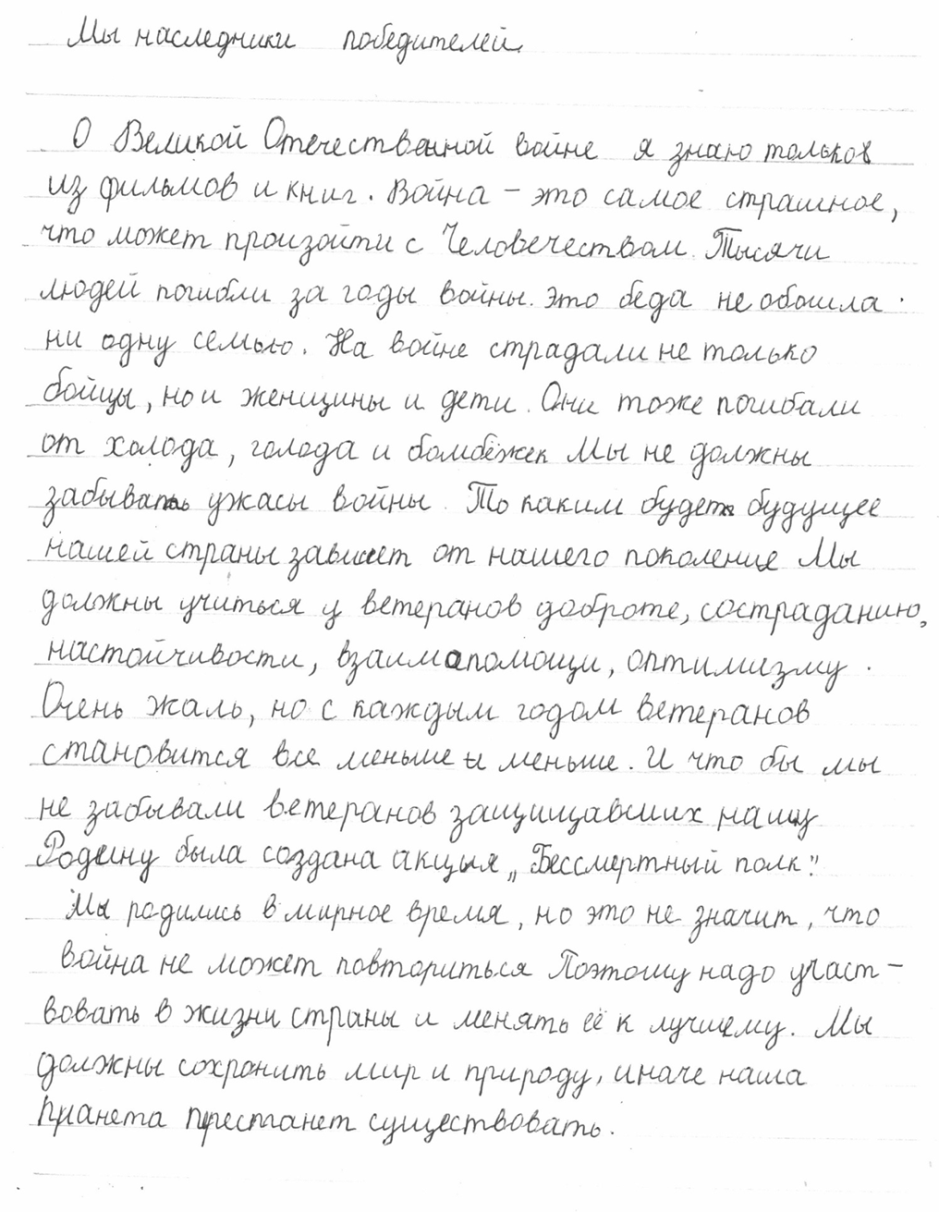 Мы наследники победителей.
О Великой Отечественной войне я знаю только
из фильмов и книг. Война – это самое страшное,
что может произойти с Человечеством. Тысячи
людей погибли за годы войны. Это беда не обошла
ни одну семью. На войне страдали не только
бойцы, но и женщины и дети. Они тоже погибали
от холода, голода и бомбёжек Мы не должны
забывать ужасы войны. То каким будет будущее
нашей страны зависет от нашего поколение Мы
должны учиться у ветеранов доброте, состраданию,
настойчивости, взаимапомощи, оптимизму.
Очень жаль, но с каждым годом ветеранов
становится все меньше и меньше. И что бы мы
не забывали ветеранов защищавших нашу
Родину была создана акция „Бессмертный полк".
Мы родились в мирное время, но это не значит, что
война не может повториться Поэтому надо участ-
вовать в жизни страны и менять её к лучшему. Мы
должны сохронить мир и природу, иначе наша
планета престанет существовать.